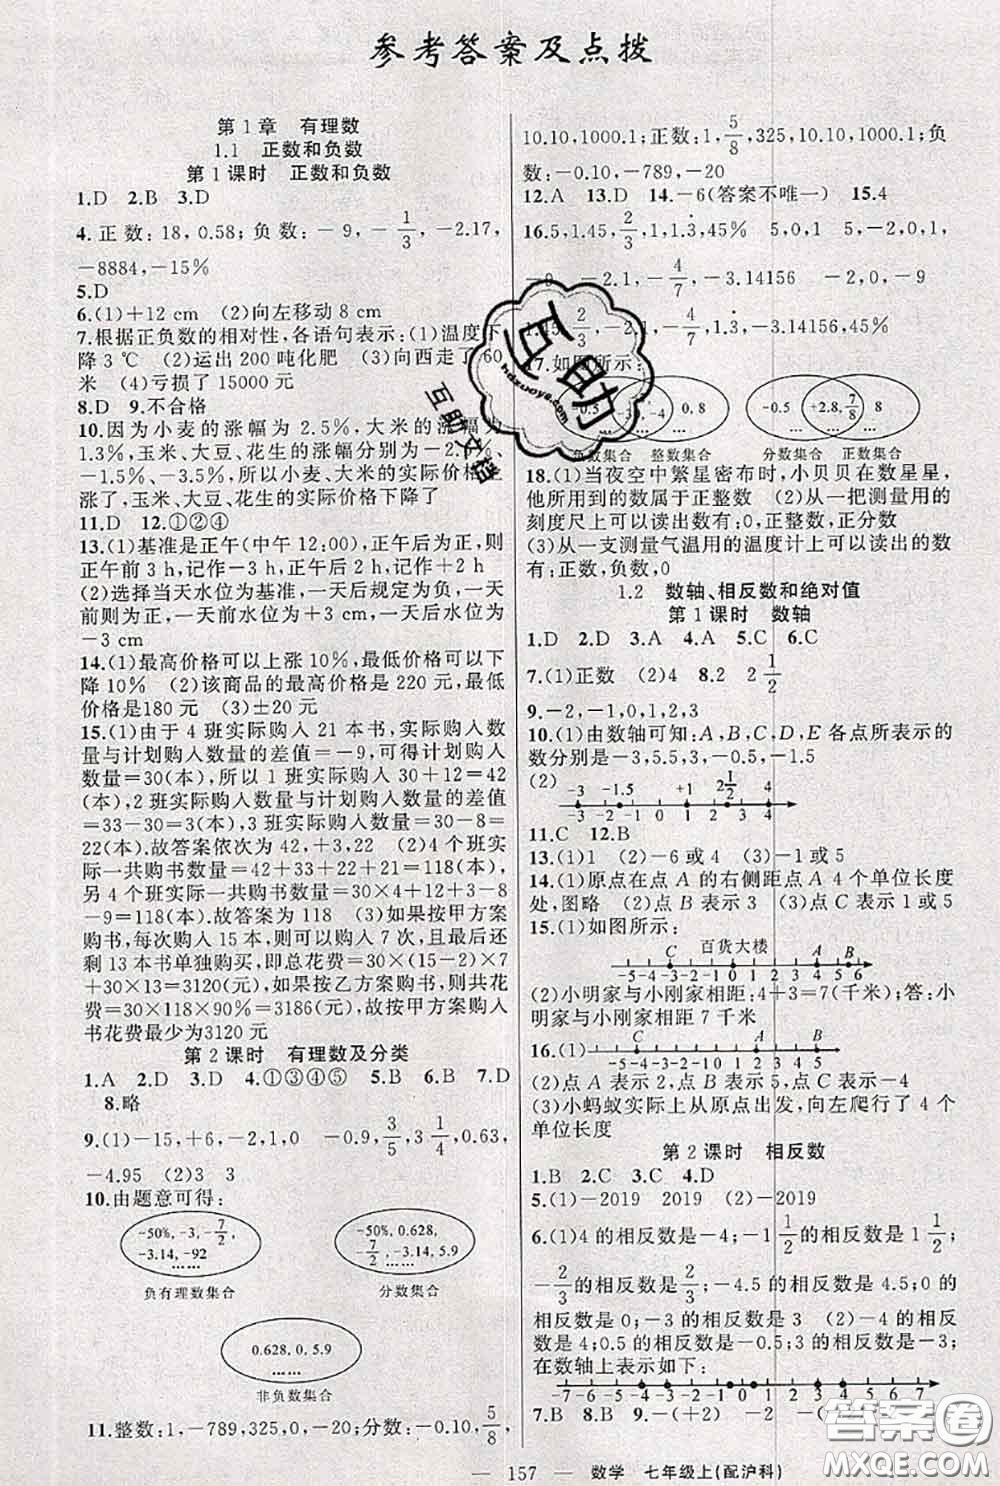 参考答案及点拨
第1章 有理数
1.1 正数和负数
第1课时 正数和负数
1.D 2.B 3.D
4.正数:18,0.58;负数:-9,-1/3,-2.17,
-8884,-15%
5.D
6.(1)+12 cm (2)向左移动8 cm
7.根据正负数的相对性,各语句表示:(1)温度下
降3 ℃ (2)运出200吨化肥 (3)向西走了60
米 (4)亏损了15000元
8.D 9.不合格
10.因为小麦的涨幅为2.5%,大米的涨幅为
1.3%,玉米、大豆、花生的涨幅分别为-2%、
-1.5%、-3.5%,所以小麦、大米的实际价格上
涨了,玉米、大豆、花生的实际价格下降了
11.D 12.①②④
13.(1)基准是正午(中午12:00),正午后为正,则
正午前3 h,记作-3 h,正午后2 h,记作+2 h
(2)选择当天水位为基准,一天后规定为负,一天
前则为正,一天前水位为+3 cm,一天后水位为
-3 cm
14.(1)最高价格可以上涨10%,最低可以下
降10% (2)该商品的最高价格是220元,最低
价格是180元 (3)±20元
15.(1)由于4班实际购入21本书,实际购入数
量与计划购入数量的差值=-9,可得计划购入
数量=30(本),所以1班实际购入30+12=42
(本),2班实际购入数量与计划购入数量的差值
=33-30=3(本),3班实际购入数量=30-8=
22(本).故答案依次为42,+3,22 (2)4个班实
际一共购书数量=42+33+22+21=118(本),
另4个班实际一共购书数量=30×4+12+3-8
-9=118(本).故答案为118 (3)如果按甲方案
购书,每次购入15本,则可以购入7次,且最后还
剩13本书单独购买,即总花费=30×(15-2)×7
+30×13=3120(元),如果按乙方案购书,则共花
费=30×118×90%=3186(元),故按甲方案购入
书花费最少为3120元
第2课时 有理数及分类
1.A 2.D 3.D 4.①③④⑤ 5.B 6.B 7.D
8.略
9.(1)-15,+6,-2,1,0 -0.9,3/5,3 1/4,0.63,
-4.95 (2)3 3
10.由题意可得:
-50%,-3,-7/2,
-3.14,-92
……
负有理数集合
-50%,0.628,
-7/2,-3.14,5.9
……
分数集合
0.628,0,5.9
……
非负数集合
11.整数:1,-789,325,0,-20;分数:-0.10,5/8,
10.10,1000.1;正数:1,5/8,325,10.10,1000.1;负
数:-0.10,-789,-20
12.A 13.D 14.-6(答案不唯一) 15.4
16.5,1.45,2/3,1,1.3̇,45% 5,0,1 5,-2,0,1,
-9 -2.1,-4/7,-3.14156 -2,0,-9
1.45,2/3,-2.1,-4/7,1.3̇,-3.14156,45%
17.如图所示:
-0.5 -3,-4 0,8
负数集合 整数集合
-0.5 +2.8,7/8 8
分数集合 正数集合
18.(1)当夜空中繁星密布时,小贝贝在数星星,
他所用到的数属于正整数 (2)从一把测量用的
刻度尺上可以读出数有:0,正整数,正分数
(3)从一支测量气温用的温度计上可以读出的数
有:正数,负数,0
1.2 数轴、相反数和绝对值
第1课时 数轴
1.D 2.D 3.A 4.A 5.C 6.C
7.(1)正数 (2)4 8.2 2 1/2
9.-2,-1,0,1,2,3
10.(1)由数轴可知:A,B,C,D,E各点所表示的
数分别是-3,5.5,3,-0.5,-1.5
(2) -3 -1.5 +1 2 1/2 4
-3 -2 -1 0 1 2 3 4
11.C 12.B
13.(1)1 (2)-6或4 (3)-1或5
14.(1)原点在点A的右侧距点A 4个单位长度
处,图略 (2)点B表示3 (3)点C表示1或5
15.(1)如图所示:
C 百货大楼 A B
-5-4-3-2-1 0 1 2 3 4 5 6
(2)小明家与小刚家相距:4+3=7(千米);答:小
明家与小刚家相距7千米
16.(1) C A B
-5-4-3-2-1 0 1 2 3 4 5
(2)点A表示2,点B表示5,点C表示-4
(3)小蚂蚁实际上从原点出发,向左爬行了4个
单位长度
第2课时 相反数
1.B 2.C 3.C 4.D
5.(1)-2019 2019 (2)-2019
6.(1)4的相反数是-4;-1 1/2的相反数是1 1/2;
-2/3的相反数是2/3;-4.5的相反数是4.5;0的
相反数是0;-3的相反数是3 (2)-4的相反
数是4;0.5的相反数是-0.5;3的相反数是-3;
在数轴上表示如下:
-7 -6 -5 -4 -3 -2 -1 0 1 2 3 4 5 6 7
7.B 8.B 9.-(+2) -2 2
— 157 — 数学 七年级上(配沪科)
互助
hdzuoye.com
互助文档
答案圈
MXQE.COM